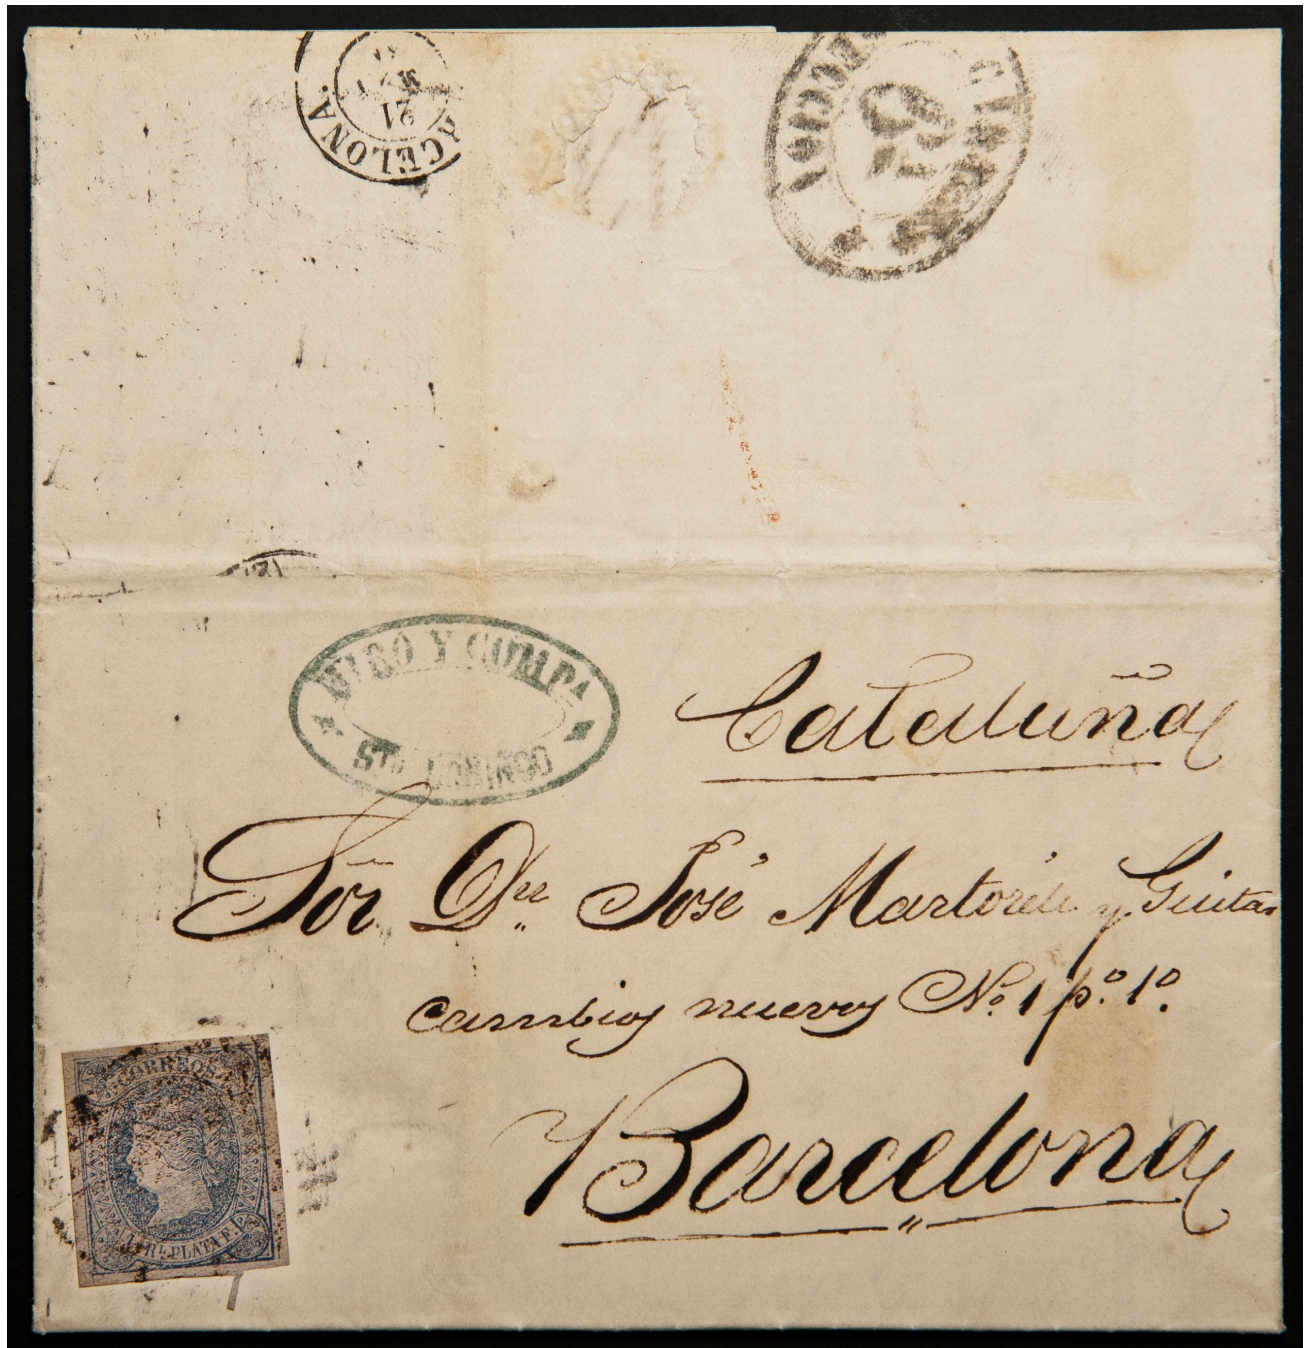 BARCELONA.
21
MIRÓ Y COMPA
STO DOMINGO
Cataluña
Sor. Dn. José Martorell y Guitar
cambios nuevos No. 1 po. 1o.
Barcelona
CORREOS
1 Rl. PLATA F.